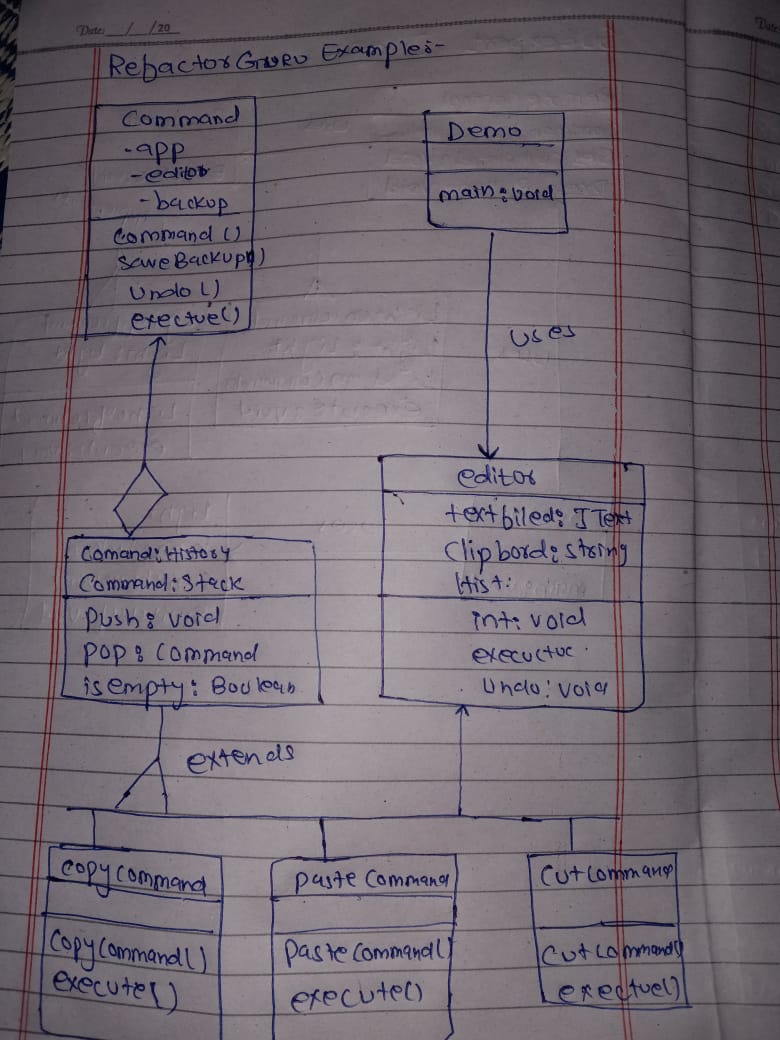 Date: / /20
RefactorGuru Example:-
Command
-app
-editor
-backup
Command()
SaveBackup()
Undo()
exectue()
Demo
main:void
uses
editor
textfiled: JText
Clipbord:string
Hist:
int: void
execuctuc
Undo:void
Comand:History
Command:Stack
Push: void
POP: Command
isempty: Boolean
extends
CopyCommand
CopyCommand()
execute()
Paste Command
Paste Command()
execute()
CutCommand
CutCommand()
exectue()